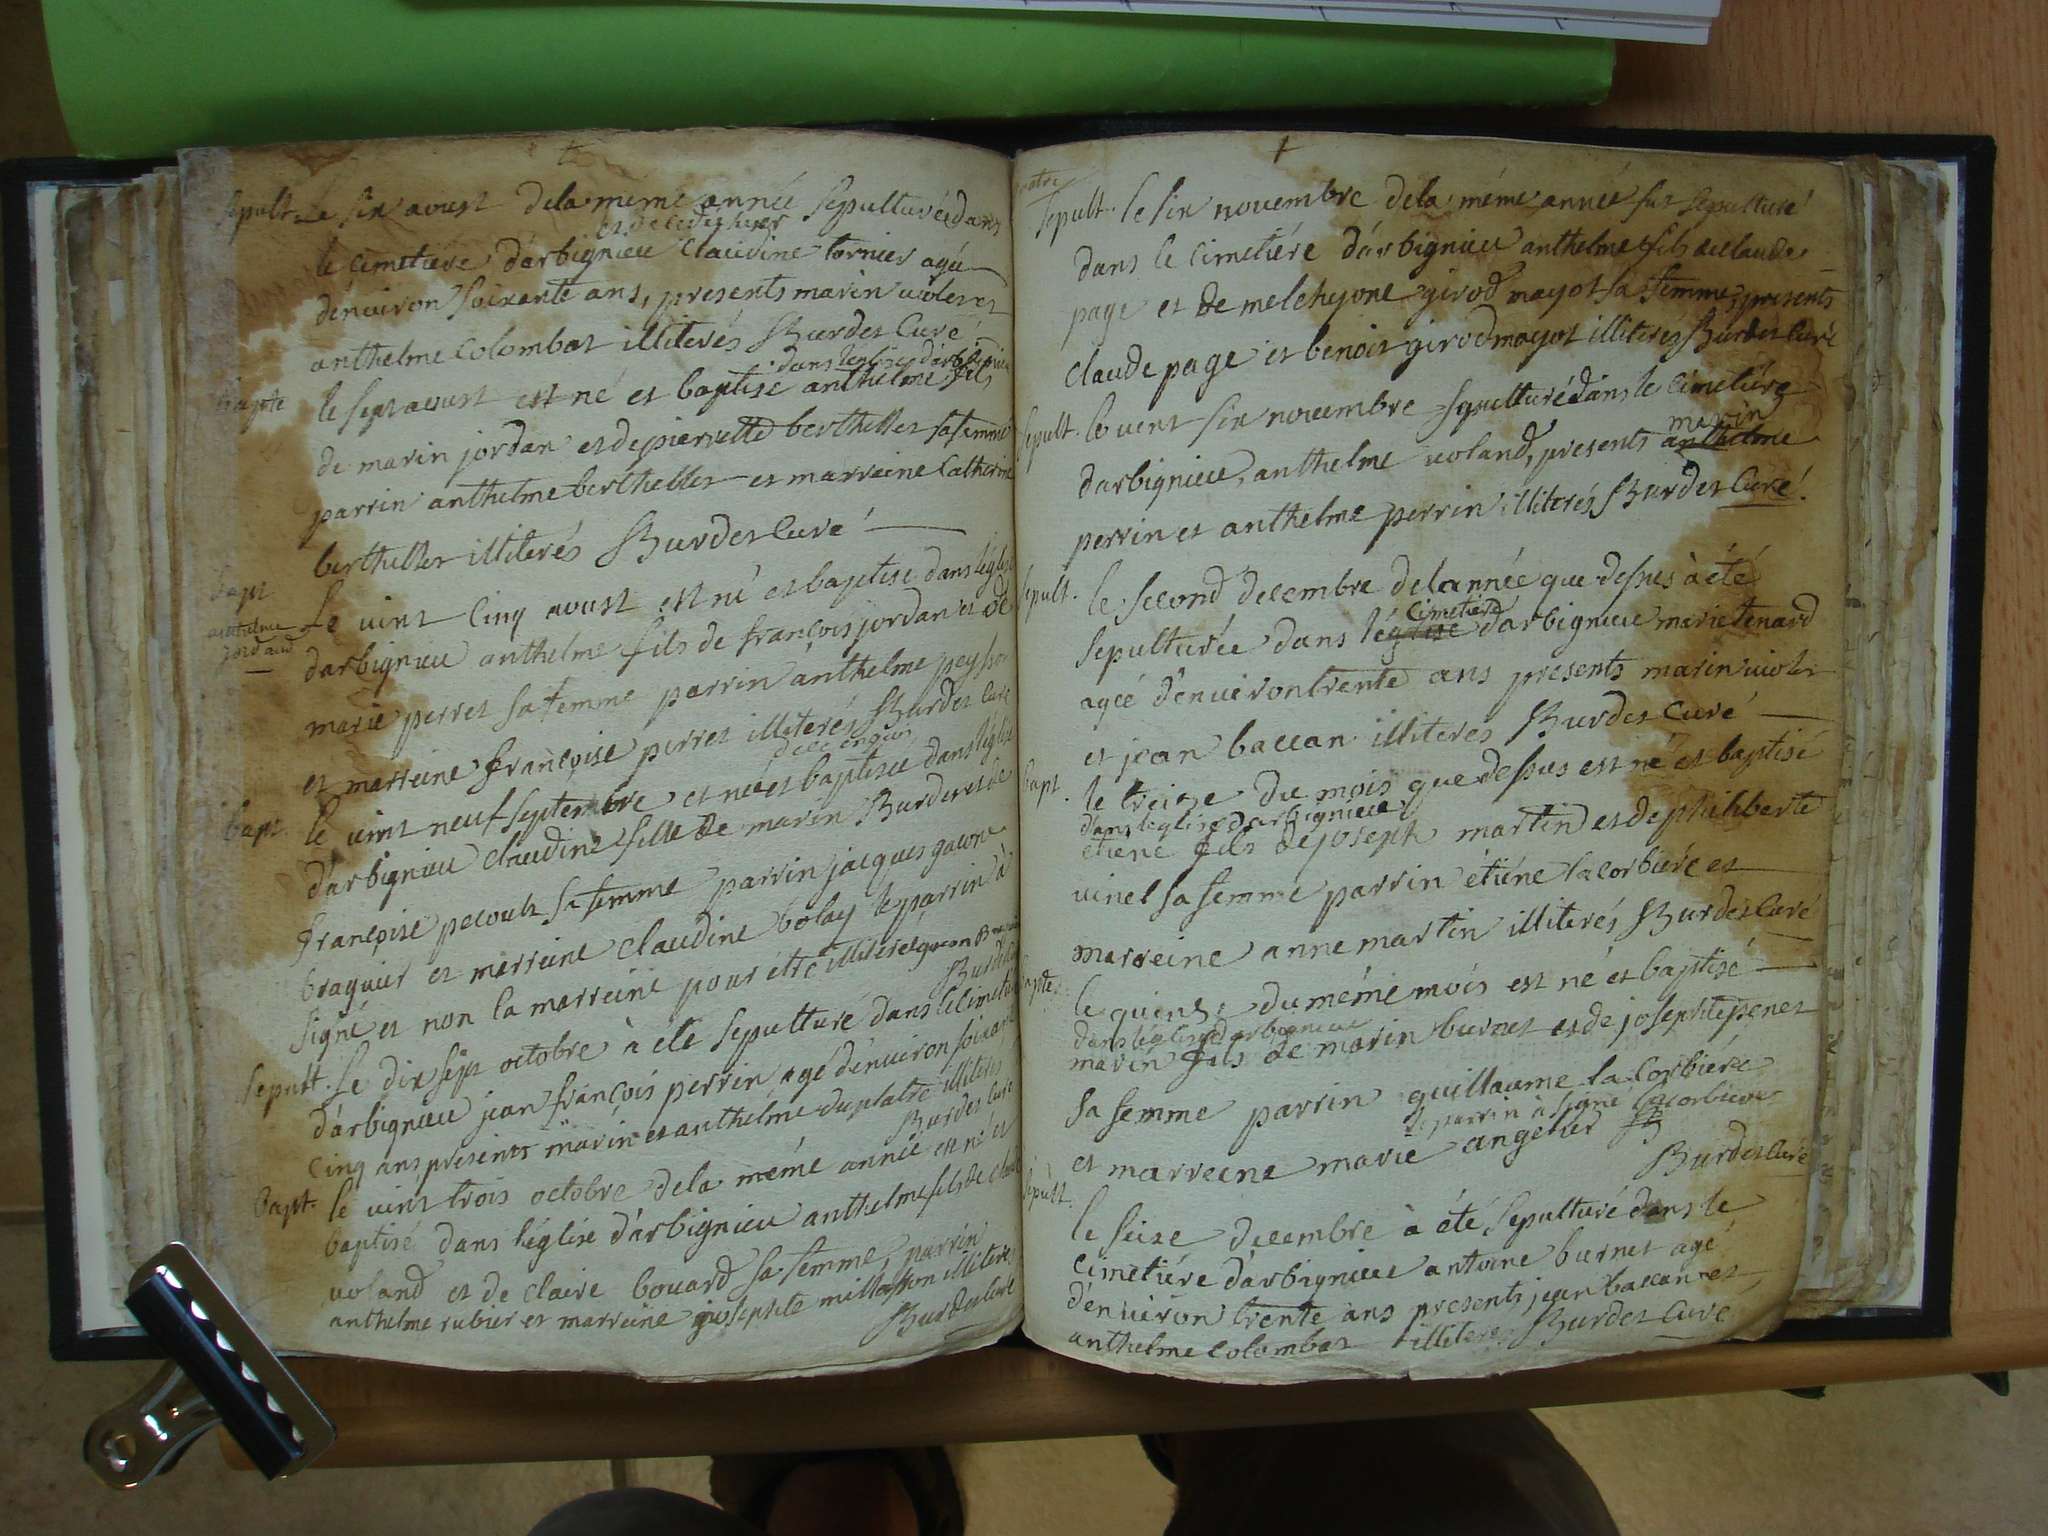 sepult. le six avust dela meme année sepulturée dans
le cimetiere d'arbignieu Claudine tornier agée
d'environ soixante ans, presents marin violet et
anthelme Colombat illiterés Burdet Curé
dans l'église d'arbignieu
bapte le sept avust est né et baptisé anthelme fils
de marin jordan et de pierrette berthellet sa femme
parrin anthelme berthellet et marreine Catherine
berthellet illiterés Burdet Curé
bapt Le vint cinq avust est né et baptisé dans l'église
anthelme jordand
darbignieu anthelme fils de françois jordan et de
marie perret sa femme parrin anthelme peysson
et marreine françoise perret illiterés Burdet Curé
bapt. le vint neuf septembre et née et baptisée dans l'église
d'arbignieu claudine fille de marin Burdet et de
françoise pecoult sa femme parrin jacques gacon
braquier et marreine claudine bolay le parrin à
signé et non la marreine pour étre illiterée gacon
Burdet
sepult. Le dix sept octobre à été sepulturé dans le cimetiere
d'arbignieu jean françois perrin agé d'environ soixante
cinq ans, presents marin et anthelme duplatre illiterés
Burdet Curé
bapt. le vint trois octobre dela méme année est né et
baptisé dans l'église d'arbignieu anthelme fils de claude
voland et de claire bouard sa femme, parrin
anthelme rubier et marreine josephte millasson illiterés
Burdet Curé
sepult. le six novembre dela méme année fut sepulturé
dans le cimetiére d'arbignieu anthelme fils de claude
page et de melchyone girod mayot sa femme, presents
claude page et benoit girod mayot illiterés Burdet Curé
sepult. le vint six novembre spulturé dans le cimetiére
marin
darbignieu, anthelme voland, presents anthelme
perrin et anthelme perrin illiterés Burdet Curé.
sepult. le second decembre delannée que dessus à été
cimetiére
sepulturée dans l'église darbignieu marie tenard
agéé d'environ trente ans presents marin violet
et jean baccan illiteres Burdet Curé
bapt. le treize du mois que dessus est né et baptisé
dans l'église darbignieu
etiene fils de joseph martin et de philiberte
vinel sa femme parrin étiéne lacorbiére et
marreine anne martin illiterés Burdet Curé
bapte. le quinze du méme mois est né et baptisé
dans l'église darbignieu
marin fils de marin burnet et de josephte penet
sa femme parrin guillaume la Corbiére
le parrin à signé lacorbiere
et marreine marie angelier
Burdet Curé
sepult. le seize decembre à été sepulturé dans le
cimetiére d'arbignieu antoine burnet agé
d'environ trente ans presents jean baccan et
anthelme Colombat illiteres Burdet Curé